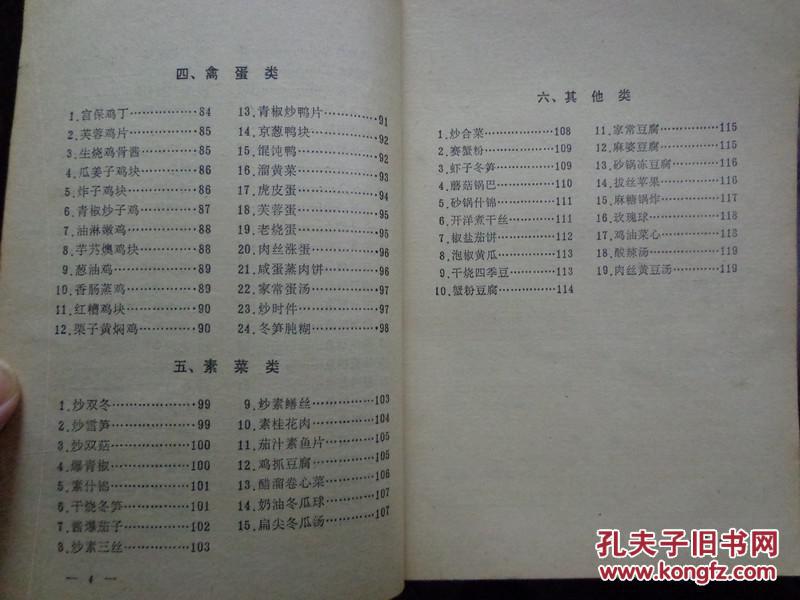 四、禽蛋类
1.宫保鸡丁………………84
2.芙蓉鸡片………………85
3.生烧鸡骨酱……………85
4.瓜姜子鸡块……………85
5.炸子鸡块………………86
6.青椒炒子鸡……………87
7.油淋嫩鸡………………88
8.芋艿燠鸡块……………88
9.葱油鸡…………………89
10.香肠蒸鸡………………89
11.红糟鸡块………………90
12.栗子黄焖鸡……………90
13.青椒炒鸭片……………91
14.京葱鸭块………………92
15.馄饨鸭…………………92
16.溜黄菜…………………93
17.虎皮蛋…………………94
18.芙蓉蛋…………………95
19.老烧蛋…………………95
20.肉丝涨蛋………………96
21.咸蛋蒸肉饼……………96
22.家常蛋汤………………97
23.炒时件…………………97
24.冬笋肫糊………………98
五、素菜类
1.炒双冬…………………99
2.炒雪笋…………………99
3.炒双菇…………………100
4.爆青椒…………………100
5.素什锦…………………101
6.干烧冬笋………………101
7.酱爆茄子………………102
8.炒素三丝………………103
9.炒素鳝丝………………103
10.素桂花肉………………104
11.茄汁素鱼片……………105
12.鸡抓豆腐………………105
13.醋溜卷心菜……………106
14.奶油冬瓜球……………107
15.扁尖冬瓜汤……………107
— 4 —
六、其他类
1.炒合菜…………………108
2.赛蟹粉…………………109
3.虾子冬笋………………109
4.蘑菇锅巴………………110
5.砂锅什锦………………111
6.开洋煮干丝……………111
7.椒盐茄饼………………112
8.泡椒黄瓜………………113
9.干烧四季豆……………113
10.蟹粉豆腐………………114
11.家常豆腐………………115
12.麻婆豆腐………………115
13.砂锅冻豆腐……………116
14.拔丝苹果………………116
15.麻糖锅炸………………117
16.玫瑰球…………………118
17.鸡油菜心………………118
18.酸辣汤…………………119
19.肉丝黄豆汤……………119
孔夫子旧书网
www.kongfz.com